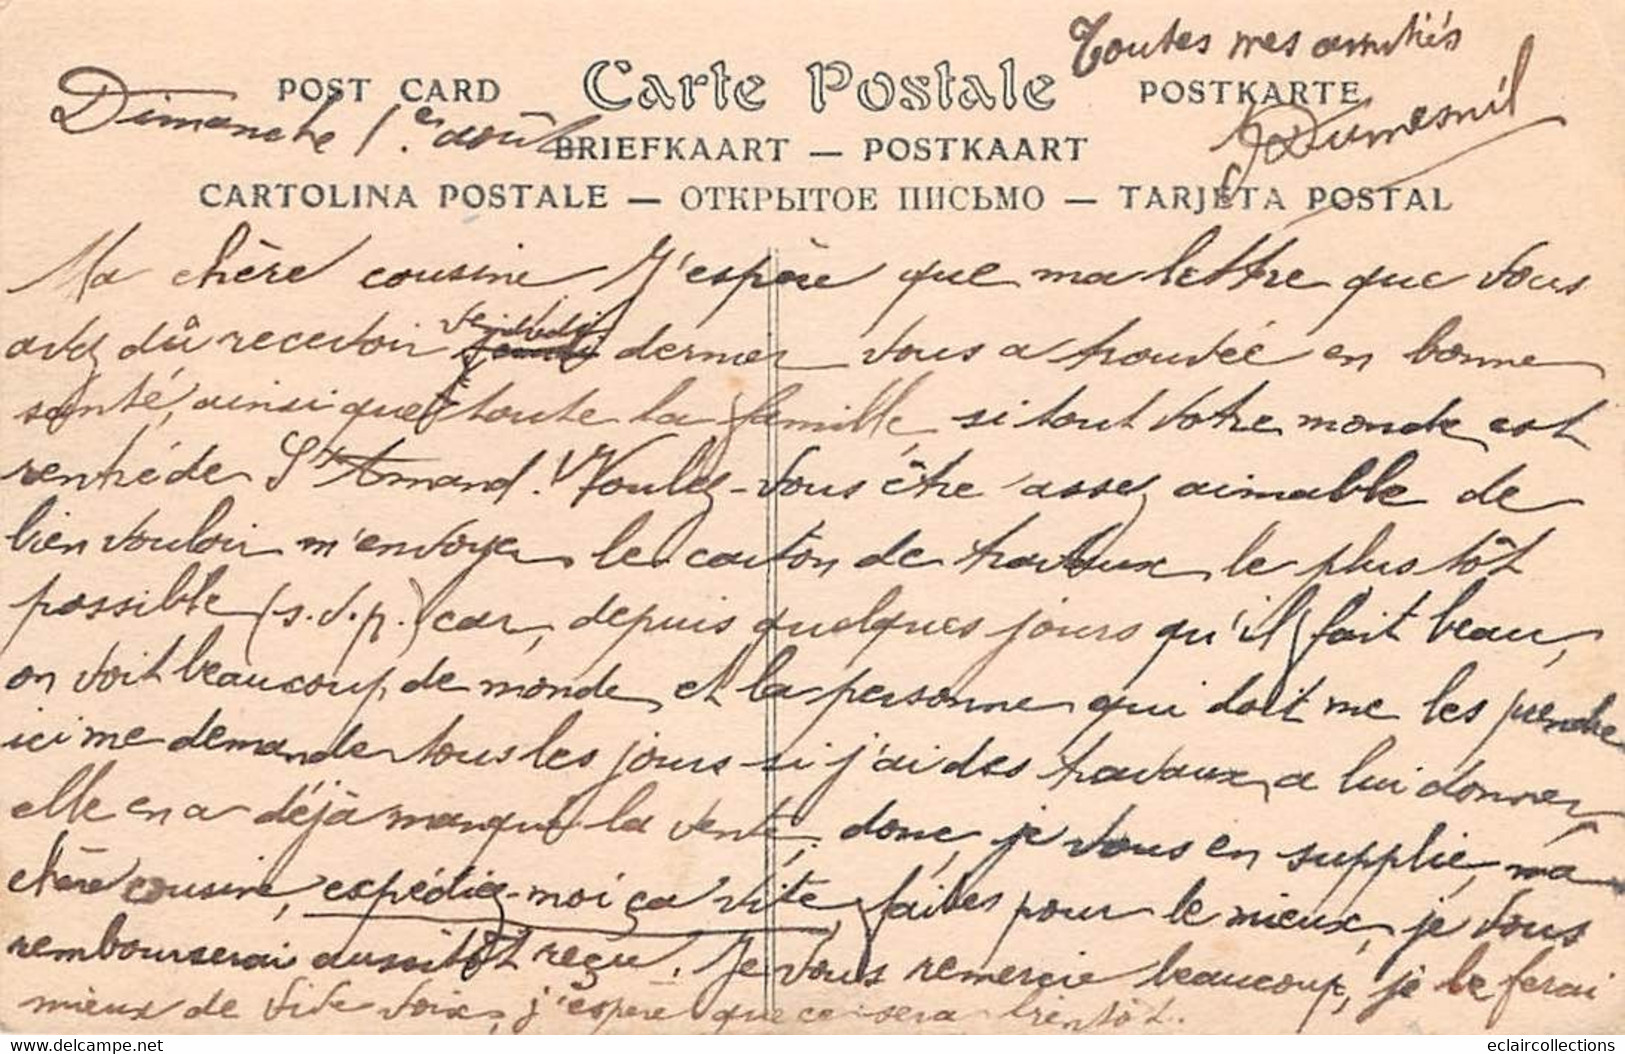 Toutes mes amitiés
POST CARD Carte Postale POSTKARTE
Dimanche 1.er août
JDumesnil
BRIEFKAART — POSTKAART
CARTOLINA POSTALE — ОТКРЫТОЕ ПИСЬМО — TARJETA POSTAL
Ma chère cousine J'espère que ma lettre que vous
avez dû recevoir vendredi dernier vous a trouvée en bonne
santé, ainsi que toute la famille, si tout votre monde est
rentré de St Amand. Voulez-vous être assez aimable de
bien vouloir m'envoyer le carton de travaux le plus tôt
possible (s.v.p.) car, depuis quelques jours qu'il fait beau,
on voit beaucoup de monde, et la personne qui doit me les prendre
ici me demande tous les jours si j'ai des travaux a lui donner,
elle en a déjà manqué la vente, donc, je vous en supplie, ma
chère cousine, expédiez-moi ça vite, faites pour le mieux, je vous
rembourserai aussitôt reçu. Je vous remercie beaucoup, je le ferai
mieux de vive voix, j'espère que ce sera bientôt.
eclaircollections
delcampe.net